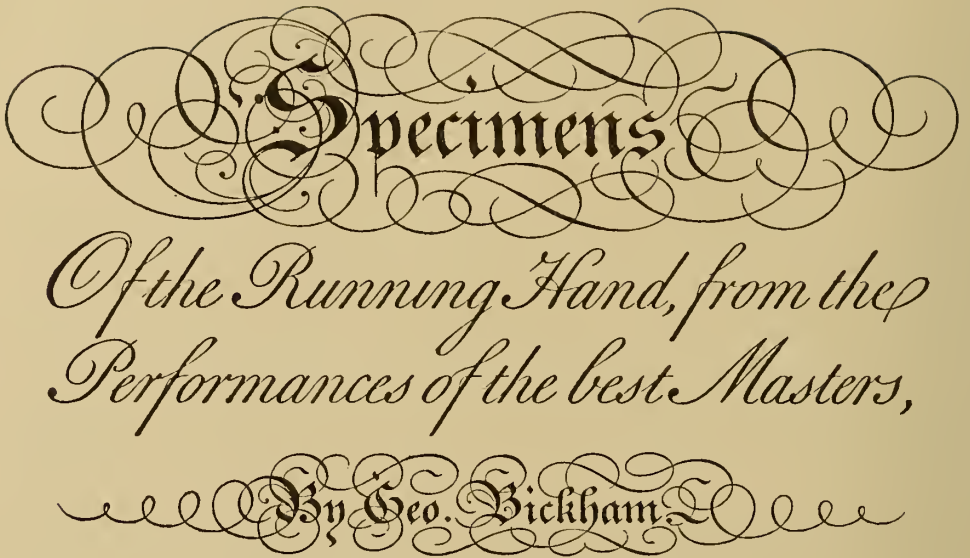 Specimens
Of the Running Hand, from the
Performances of the best Masters,
By Geo. Bickham